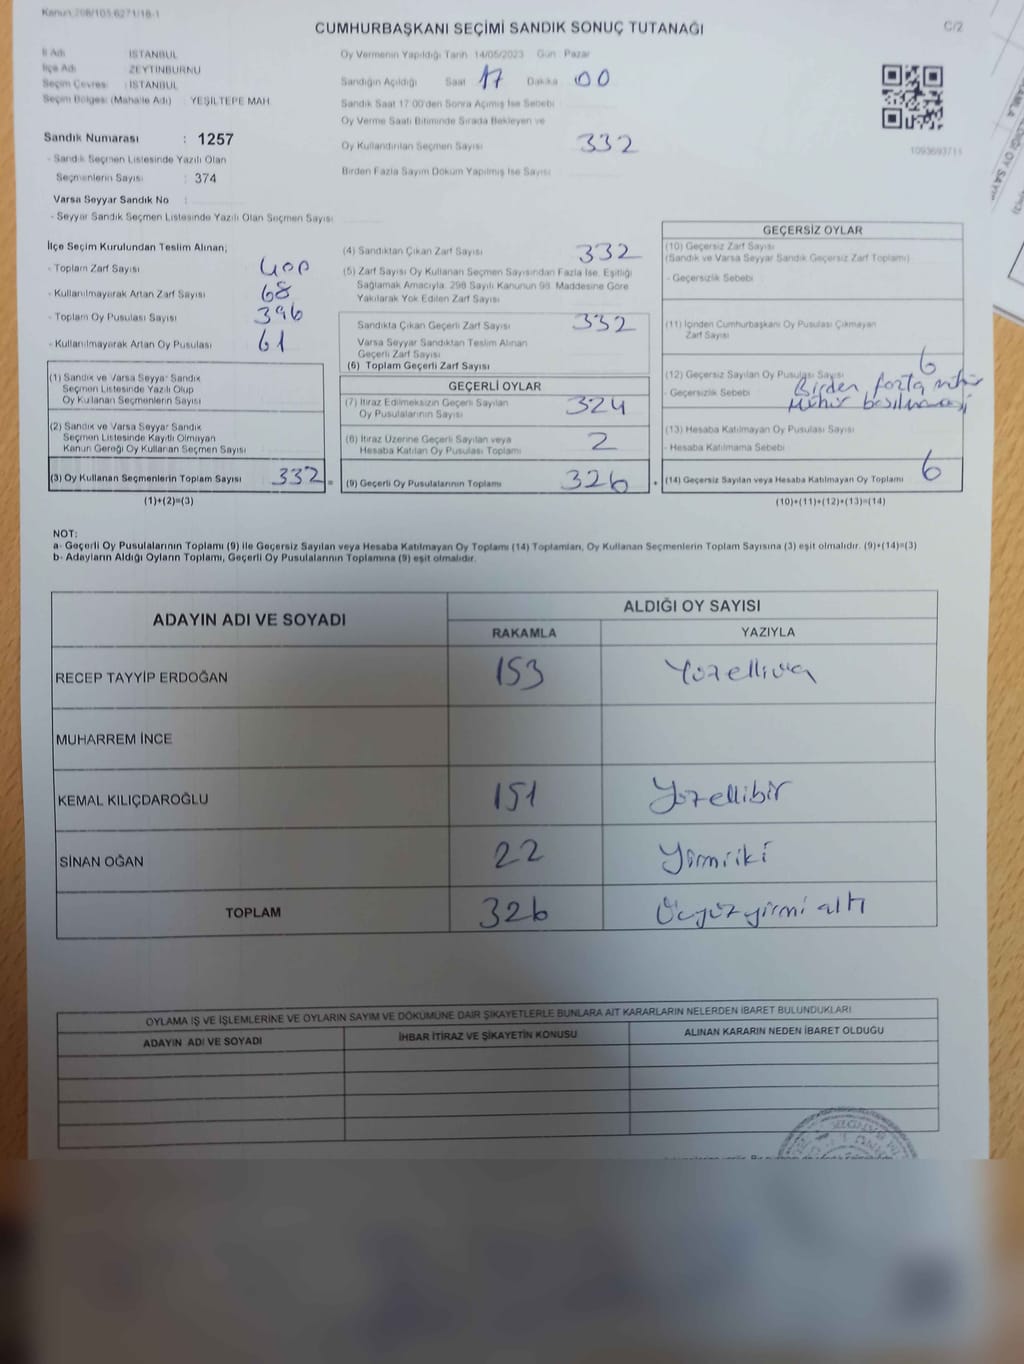 Kanun 298/105.6271/16-1
CUMHURBAŞKANI SEÇİMİ SANDIK SONUÇ TUTANAĞI
C/2
İl Adı : İSTANBUL
İlçe Adı : ZEYTİNBURNU
Seçim Çevresi : İSTANBUL
Seçim Bölgesi (Mahalle Adı) : YEŞİLTEPE MAH.
Oy Vermenin Yapıldığı Tarih 14/05/2023 Gün : Pazar
Sandığın Açıldığı Saat 17 Dakika 00
Sandık Saat 17:00'den Sonra Açılmış İse Sebebi
Oy Verme Saati Bitiminde Sırada Bekleyen ve
Oy Kullandırılan Seçmen Sayısı 332
Birden Fazla Sayım Döküm Yapılmış İse Sayısı
1093693711
Sandık Numarası : 1257
- Sandık Seçmen Listesinde Yazılı Olan
Seçmenlerin Sayısı : 374
Varsa Seyyar Sandık No :
- Seyyar Sandık Seçmen Listesinde Yazılı Olan Seçmen Sayısı
İlçe Seçim Kurulundan Teslim Alınan;
- Toplam Zarf Sayısı 400
- Kullanılmayarak Artan Zarf Sayısı 68
- Toplam Oy Pusulası Sayısı 396
- Kullanılmayarak Artan Oy Pusulası 61
(1) Sandık ve Varsa Seyyar Sandık
Seçmen Listesinde Yazılı Olup
Oy Kullanan Seçmenlerin Sayısı
(2) Sandık ve Varsa Seyyar Sandık
Seçmen Listesinde Kayıtlı Olmayan
Kanun Gereği Oy Kullanan Seçmen Sayısı
(3) Oy Kullanan Seçmenlerin Toplam Sayısı 332 =
(1)+(2)=(3)
(4) Sandıktan Çıkan Zarf Sayısı 332
(5) Zarf Sayısı Oy Kullanan Seçmen Sayısından Fazla İse, Eşitliği
Sağlamak Amacıyla, 298 Sayılı Kanunun 98. Maddesine Göre
Yakılarak Yok Edilen Zarf Sayısı
Sandıkta Çıkan Geçerli Zarf Sayısı 332
Varsa Seyyar Sandıktan Teslim Alınan
Geçerli Zarf Sayısı
(6) Toplam Geçerli Zarf Sayısı
GEÇERLİ OYLAR
(7) İtiraz Edilmeksizin Geçerli Sayılan
Oy Pusulalarının Sayısı 324
(8) İtiraz Üzerine Geçerli Sayılan veya
Hesaba Katılan Oy Pusulası Toplamı 2
(9) Geçerli Oy Pusulalarının Toplamı 326 +
GEÇERSİZ OYLAR
(10) Geçersiz Zarf Sayısı
(Sandık ve Varsa Seyyar Sandık Geçersiz Zarf Toplamı)
- Geçersizlik Sebebi
(11) İçinden Cumhurbaşkanı Oy Pusulası Çıkmayan
Zarf Sayısı
(12) Geçersiz Sayılan Oy Pusulası Sayısı 6
- Geçersizlik Sebebi Birden fazla mühür
Mühür basılmamış
(13) Hesaba Katılmayan Oy Pusulası Sayısı
- Hesaba Katılmama Sebebi
(14) Geçersiz Sayılan veya Hesaba Katılmayan Oy Toplamı 6
(10)+(11)+(12)+(13)=(14)
NOT:
a- Geçerli Oy Pusulalarının Toplamı (9) ile Geçersiz Sayılan veya Hesaba Katılmayan Oy Toplamı (14) Toplamları, Oy Kullanan Seçmenlerin Toplam Sayısına (3) eşit olmalıdır. (9)+(14)=(3)
b- Adayların Aldığı Oyların Toplamı, Geçerli Oy Pusulalarının Toplamına (9) eşit olmalıdır.
ADAYIN ADI VE SOYADI
ALDIĞI OY SAYISI
RAKAMLA YAZIYLA
RECEP TAYYİP ERDOĞAN 153 Yüzelliüç
MUHARREM İNCE
KEMAL KILIÇDAROĞLU 151 Yüzellibir
SİNAN OĞAN 22 Yirmiiki
TOPLAM 326 Üçyüzyirmi altı
OYLAMA İŞ VE İŞLEMLERİNE VE OYLARIN SAYIM VE DÖKÜMÜNE DAİR ŞİKAYETLERLE BUNLARA AİT KARARLARIN NELERDEN İBARET BULUNDUKLARI
ADAYIN ADI VE SOYADI İHBAR İTİRAZ VE ŞİKAYETİN KONUSU ALINAN KARARIN NEDEN İBARET OLDUĞU